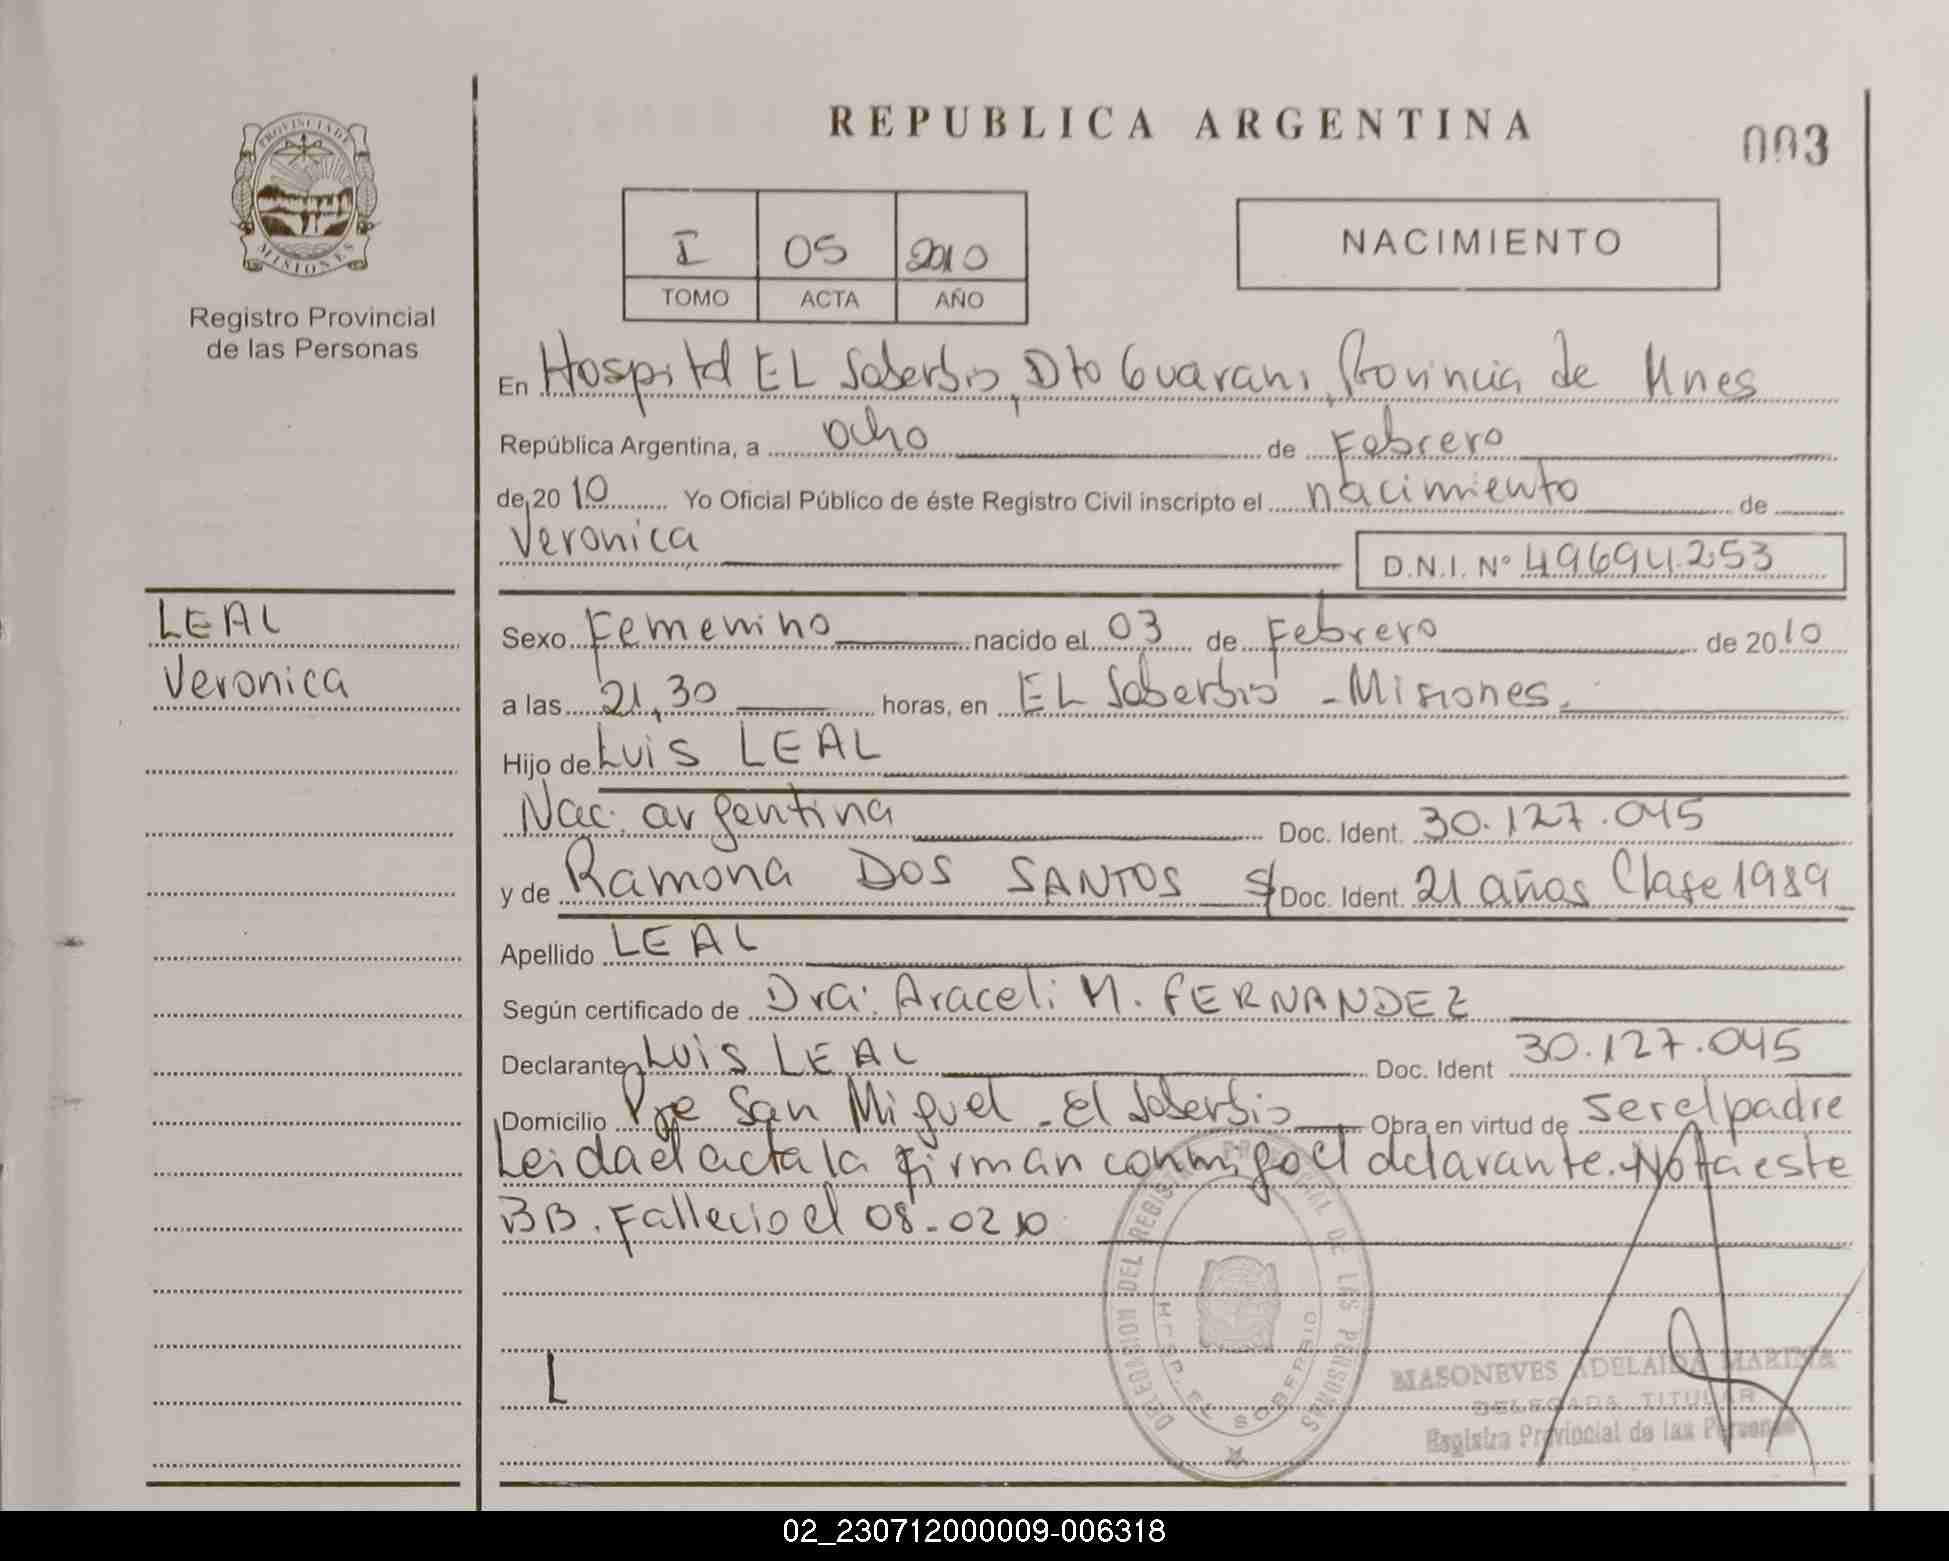 REPUBLICA ARGENTINA
003
PROVINCIA DE
MISIONES
Registro Provincial
de las Personas
I 05 2010
TOMO ACTA AÑO
NACIMIENTO
En Hospital EL Soberbio, Dto Guarani, Provincia de Mnes
República Argentina, a ocho de Febrero
de 2010 Yo Oficial Público de éste Registro Civil inscripto el nacimiento de
Veronica
D.N.I. Nº 49694.253
LEAL
Veronica
Sexo Femenino nacido el 03 de Febrero de 2010
a las 21,30 horas, en EL Soberbio - Misiones.
Hijo de Luis LEAL
Nac. argentina Doc. Ident. 30.127.045
y de Ramona DOS SANTOS S/ Doc. Ident. 21 años Clase 1989
Apellido LEAL
Según certificado de Dra. Araceli M. FERNANDEZ
Declarante Luis LEAL Doc. Ident 30.127.045
Domicilio Pje San Miguel - El Soberbio Obra en virtud de ser el padre
Leida el acta la firman conmigo el declarante. Nota este
BB. Fallecio el 08-02 10
DELEGACION DEL REGISTRO PROVINCIAL DE LAS PERSONAS
HOSP. EL SOBERBIO
MASONEVES ADELAIDA MARINA
DELEGADA TITULAR
Registro Provincial de las Personas
02_230712000009-006318